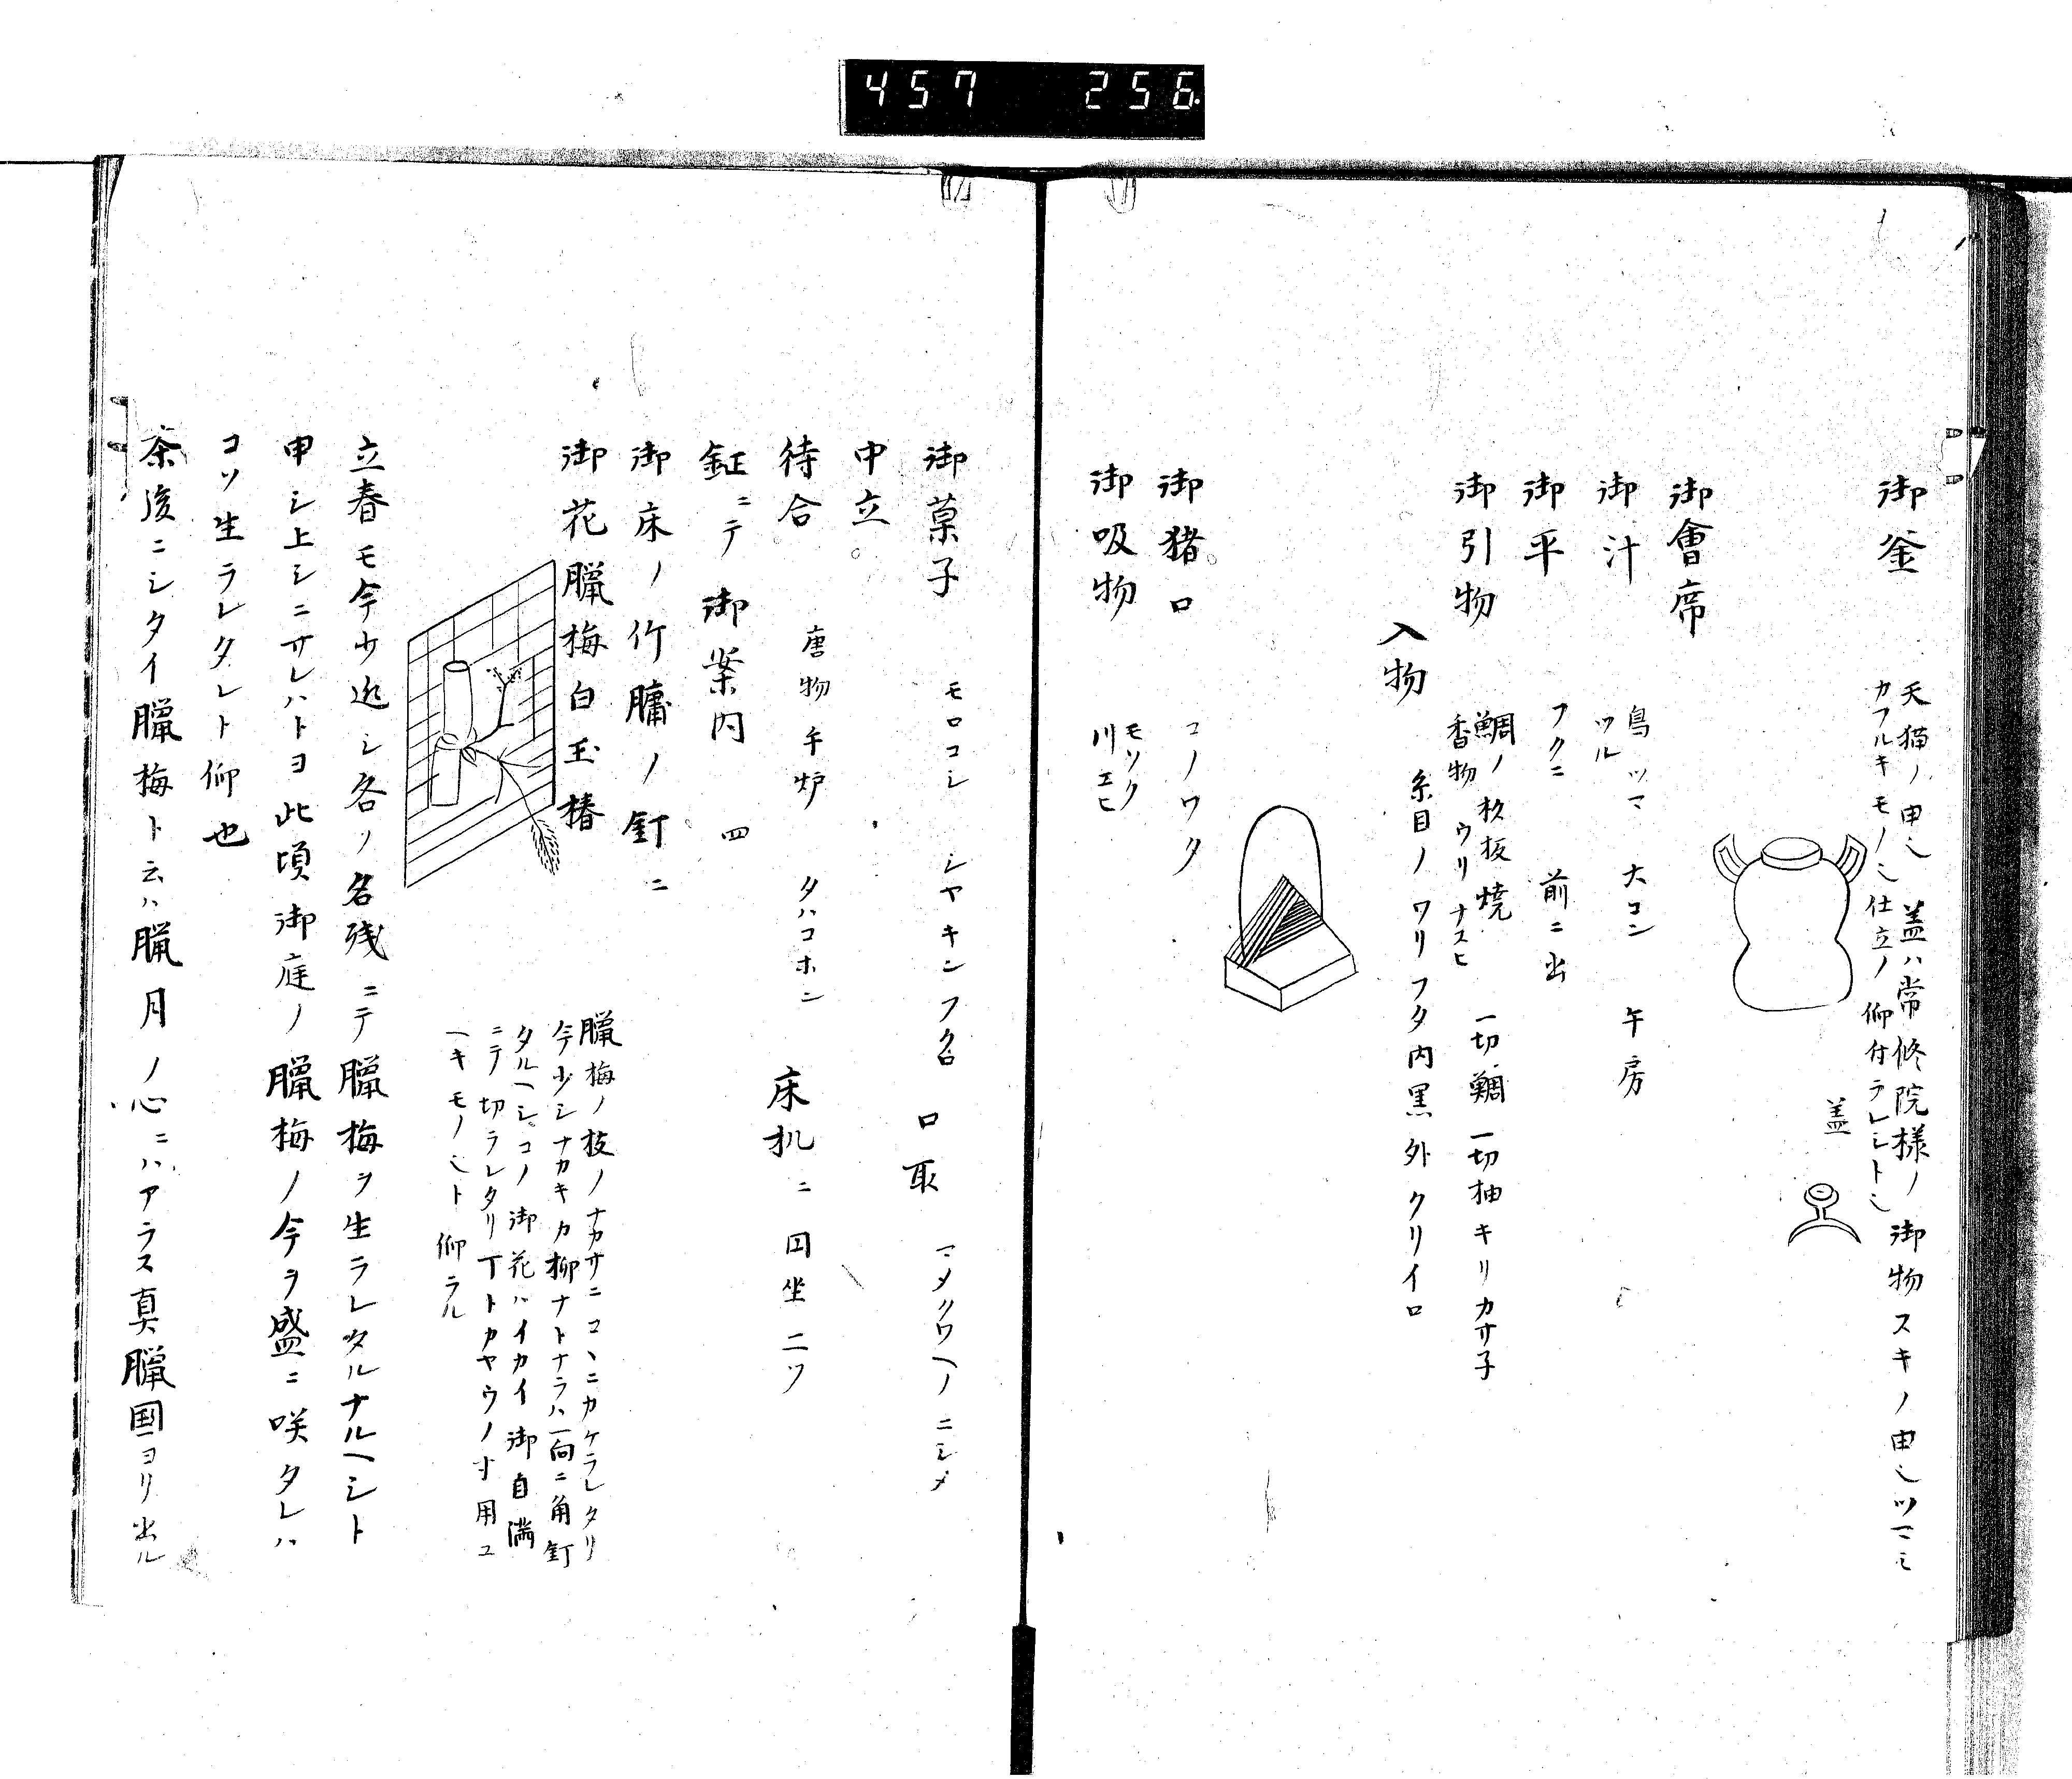 457 256
御釜
天猫ノ由也 蓋ハ常修院様ノ御物スキノ由也ツマミ
カフルキモノ也仕立ノ仰付ラレシト也
蓋
御會席
御汁
鳥 ツマ 大コン 午房
ツル
御平 フクニ 前ニ出
御引物
鯛ノ杉板焼 一切鯛一切抽キリカサ子
香物 ウリ ナスヒ
入物 糸目ノワリフタ内黒外クリイロ
御猪口 コノワタ
御吸物
モツク
川エヒ
御菓子 モロコシ シヤキンフクロ 口取 マメクワヘノニシメ
中立
待合 唐物手炉 タハコホン 床机ニ円坐二ツ
鉦ニテ御案内 四
御床ノ竹牗ノ釘ニ
御花臘梅白玉椿
臘梅ノ枝ノナカサニコヽニカケラレタリ
今少シナカキカ柳ナトナラハ向ニ角釘
タルヘシコノ御花ハイカイ御自満
ニテ切ラレタリ丁トカヤウノ寸用ユ
ヘキモノ也ト仰ラル
立春モ今少近シ冬ノ名残ニテ臘梅ヲ生ラレタルナルヘシト
申シ上シニサレハトヨ此頃御庭ノ臘梅ノ今ヲ盛ニ咲タレハ
コソ生ラレタレト仰也
茶後ニシタイ臘梅ト云ハ臘月ノ心ニハアラス真臘国ヨリ出ル